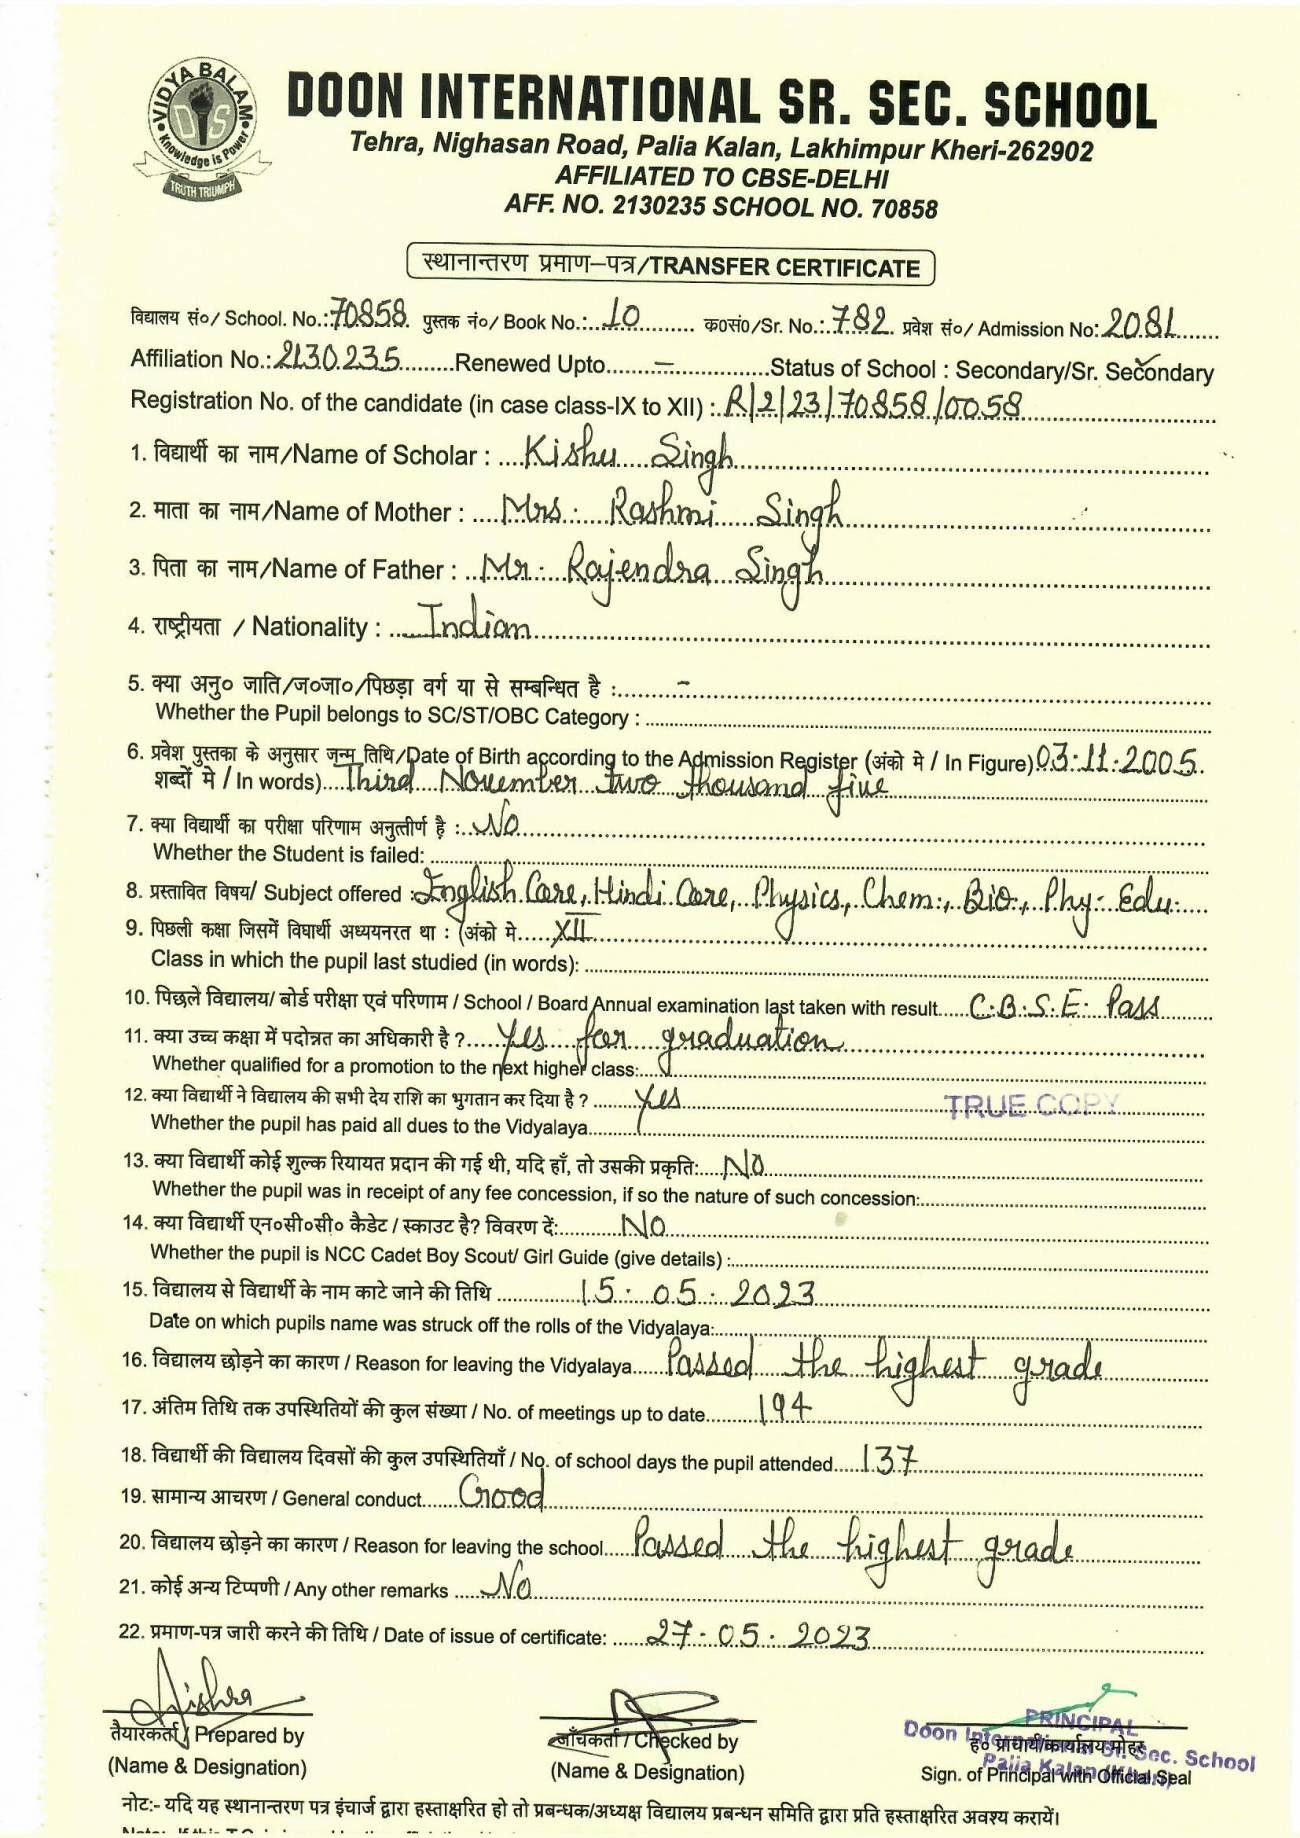 VIDYA BALAM
DIS
Knowledge is Power
TRUTH TRIUMPH
DOON INTERNATIONAL SR. SEC. SCHOOL
Tehra, Nighasan Road, Palia Kalan, Lakhimpur Kheri-262902
AFFILIATED TO CBSE-DELHI
AFF. NO. 2130235 SCHOOL NO. 70858
स्थानान्तरण प्रमाण–पत्र/TRANSFER CERTIFICATE
विद्यालय सं०/ School. No.: 70858 पुस्तक नं०/ Book No.: 10 क०सं०/Sr. No.: 782 प्रवेश सं०/ Admission No: 2081
Affiliation No.: 2130235 Renewed Upto – Status of School : Secondary/Sr. Secondary
Registration No. of the candidate (in case class-IX to XII) : R/2/23/70858/0058
1. विद्यार्थी का नाम/Name of Scholar : Kishu Singh
2. माता का नाम/Name of Mother : Mrs. Rashmi Singh
3. पिता का नाम/Name of Father : Mr. Rajendra Singh
4. राष्ट्रीयता / Nationality : Indian
5. क्या अनु० जाति/ज०जा०/पिछड़ा वर्ग या से सम्बन्धित है : –
Whether the Pupil belongs to SC/ST/OBC Category :
6. प्रवेश पुस्तका के अनुसार जन्म तिथि/Date of Birth according to the Admission Register (अंको मे / In Figure) 03.11.2005
शब्दों मे / In words) Third November two thousand five
7. क्या विद्यार्थी का परीक्षा परिणाम अनुत्तीर्ण है : No
Whether the Student is failed:
8. प्रस्तावित विषय/ Subject offered : English Core, Hindi Core, Physics, Chem., Bio., Phy. Edu.
9. पिछली कक्षा जिसमें विघार्थी अध्ययनरत था : (अंको मे XII
Class in which the pupil last studied (in words):
10. पिछले विद्यालय/ बोर्ड परीक्षा एवं परिणाम / School / Board Annual examination last taken with result C.B.S.E. Pass
11. क्या उच्च कक्षा में पदोन्नत का अधिकारी है ? Yes for graduation
Whether qualified for a promotion to the next higher class:
12. क्या विद्यार्थी ने विद्यालय की सभी देय राशि का भुगतान कर दिया है ? Yes
TRUE COPY
Whether the pupil has paid all dues to the Vidyalaya
13. क्या विद्यार्थी कोई शुल्क रियायत प्रदान की गई थी, यदि हाँ, तो उसकी प्रकृति: No
Whether the pupil was in receipt of any fee concession, if so the nature of such concession:
14. क्या विद्यार्थी एन०सी०सी० कैडेट / स्काउट है? विवरण दें: No
Whether the pupil is NCC Cadet Boy Scout/ Girl Guide (give details) :
15. विद्यालय से विद्यार्थी के नाम काटे जाने की तिथि 15.05.2023
Date on which pupils name was struck off the rolls of the Vidyalaya:
16. विद्यालय छोड़ने का कारण / Reason for leaving the Vidyalaya Passed the highest grade
17. अंतिम तिथि तक उपस्थितियों की कुल संख्या / No. of meetings up to date 194
18. विद्यार्थी की विद्यालय दिवसों की कुल उपस्थितियाँ / No. of school days the pupil attended 137
19. सामान्य आचरण / General conduct Good
20. विद्यालय छोड़ने का कारण / Reason for leaving the school Passed the highest grade
21. कोई अन्य टिप्पणी / Any other remarks No
22. प्रमाण-पत्र जारी करने की तिथि / Date of issue of certificate: 27.05.2023
तैयारकर्ता / Prepared by
(Name & Designation)
जाँचकर्ता / Checked by
(Name & Designation)
PRINCIPAL
Doon International Sr. Sec. School
Palia Kalan (Kheri)
ह० प्राचार्य/कार्यालय मोहर
Sign. of Principal with Official Seal
नोट:- यदि यह स्थानान्तरण पत्र इंचार्ज द्वारा हस्ताक्षरित हो तो प्रबन्धक/अध्यक्ष विद्यालय प्रबन्धन समिति द्वारा प्रति हस्ताक्षरित अवश्य करायें।